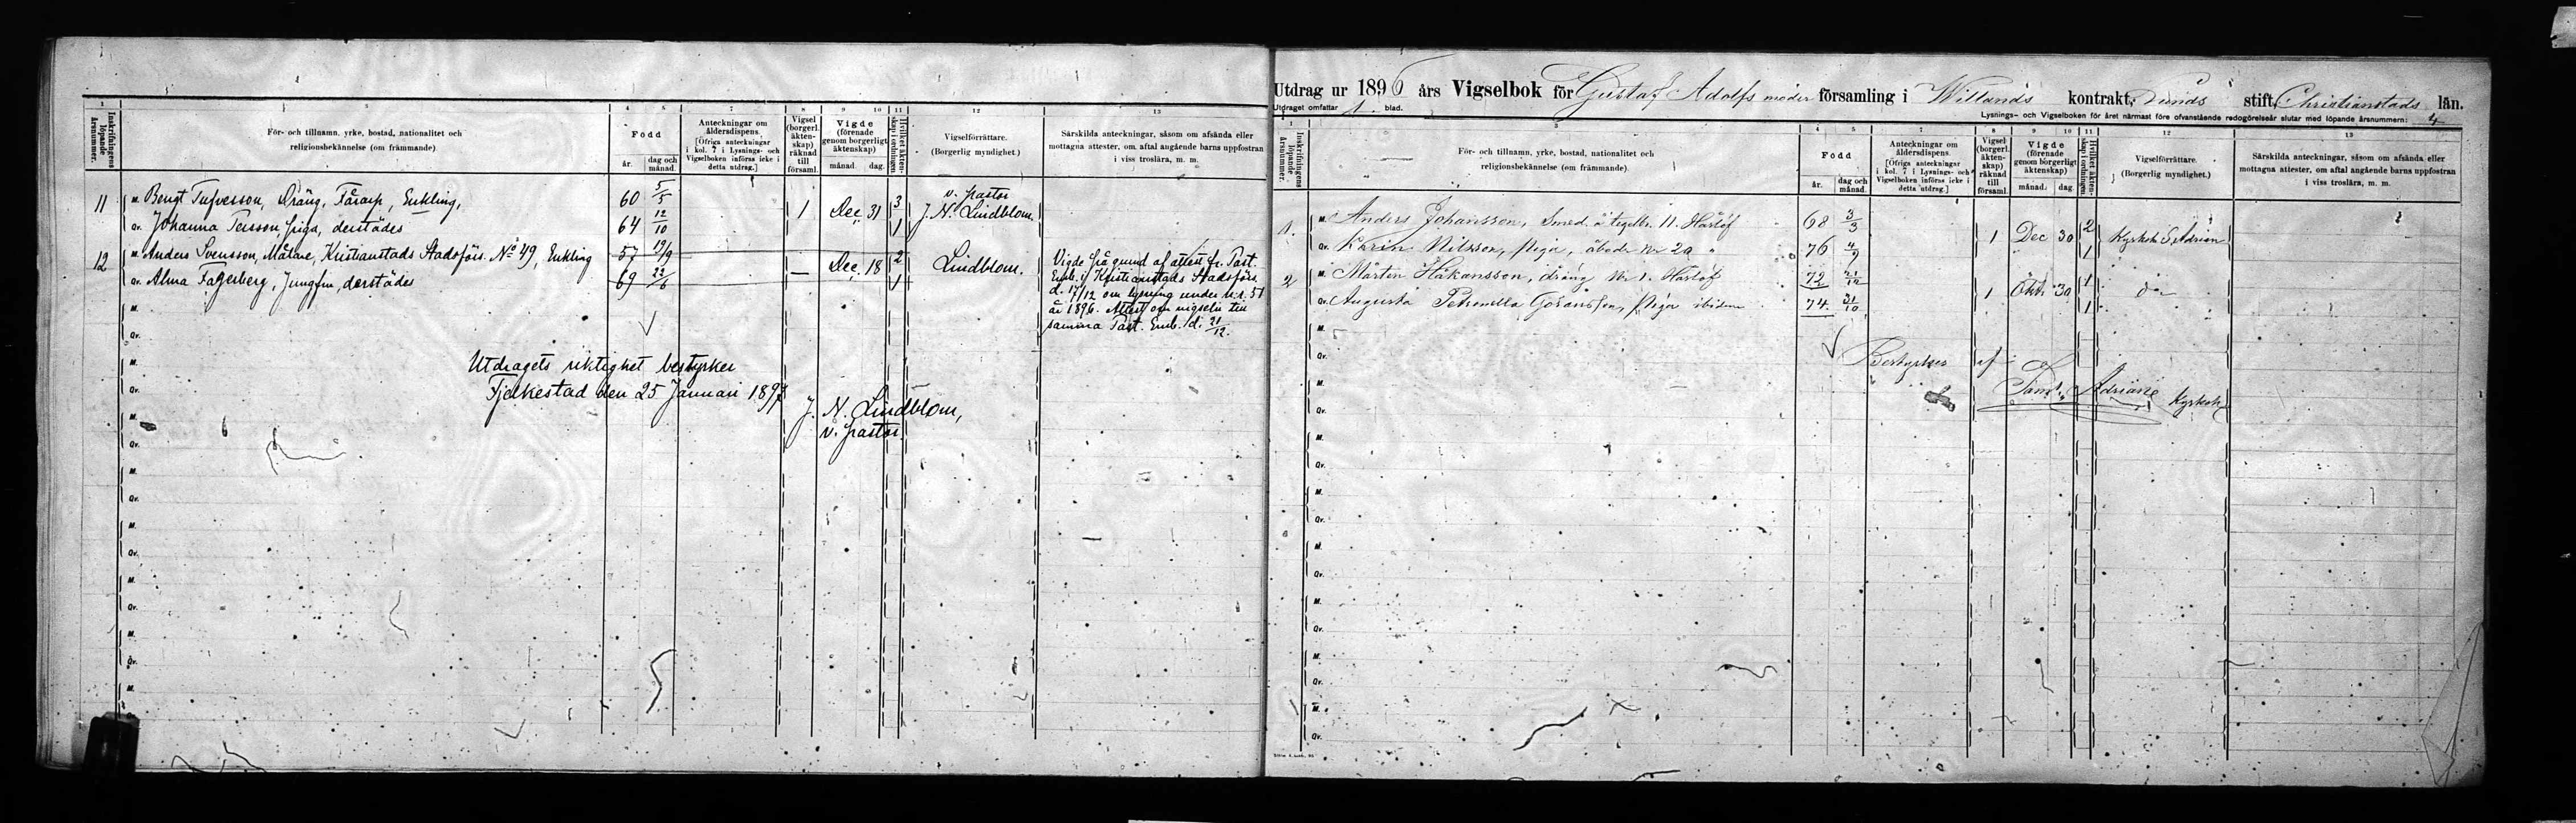 1
Inskrifningens löpande årsnummer.
3
För- och tillnamn, yrke, bostad, nationalitet och
religionsbekännelse (om främmande).
4 5
Född
år. dag och månad.
7
Anteckningar om
åldersdispens.
[Öfriga anteckningar
i kol. 7 i Lysnings- och
Vigselboken införas icke i
detta utdrag.]
8
Vigsel
(borgerl.
äkten-
skap)
räknad
till
församl.
9 10
Vigde
(förenade
genom borgerligt
äktenskap)
månad. dag.
11
Hvilket äkten-
skap i ordningen.
12
Vigselförrättare.
(Borgerlig myndighet.)
13
Särskilda anteckningar, såsom om afsända eller
mottagna attester, om aftal angående barns uppfostran
i viss troslära, m. m.
11 M. Bengt Tufvesson, Dräng, Tårarp, Enkling, 60 5/5 1 Dec. 31 3 v. pastor
Qv. Johanna Persson, piga, derstädes 64 12/10 1 J. N. Lindblom.
12 M. Anders Svensson, Målare, Kristianstads Stadsförs. No 49, Enkling 57 19/9 — Dec. 18 2 Lindblom.
Qv. Alma Fagerberg, Jungfru, derstädes 69 22/6 1
Vigde på grund af attest fr. Past.
Emb. i Kristianstads Stadsförs.
d. 17/12 om lysning under N:r 51
år 1896. Attest om vigseln till
samma Past. Emb. d. 21/12.
M.
Qv.
Utdragets riktighet bestyrker
Fjelkestad den 25 Januari 1897
J. N. Lindblom,
v. pastor.
M.
Qv.
M.
Qv.
M.
Qv.
M.
Qv.
M.
Qv.
M.
Qv.
M.
Utdrag ur 1896 års Vigselbok för Gustaf Adolfs moder församling i Willands kontrakt, Lunds stift, Christianstads län.
Utdraget omfattar 1 blad.
Lysnings- och Vigselboken för året närmast före ofvanstående redogörelseår slutar med löpande årsnummern: 4
1
Inskrifningens löpande årsnummer.
3
För- och tillnamn, yrke, bostad, nationalitet och
religionsbekännelse (om främmande).
4 5
Född
år. dag och månad.
7
Anteckningar om
åldersdispens.
[Öfriga anteckningar
i kol. 7 i Lysnings- och
Vigselboken införas icke i
detta utdrag.]
8
Vigsel
(borgerl.
äkten-
skap)
räknad
till
församl.
9 10
Vigde
(förenade
genom borgerligt
äktenskap)
månad. dag.
11
Hvilket äkten-
skap i ordningen.
12
Vigselförrättare.
(Borgerlig myndighet.)
13
Särskilda anteckningar, såsom om afsända eller
mottagna attester, om aftal angående barns uppfostran
i viss troslära, m. m.
1. M. Anders Johansson, Smed å tegelbr. 11. Härlöf 68 3/3 1 Dec 30 2 Kyrkoh. S. Adrian
Qv. Karin Nilsson, piga, åbode Nr 20 " 76 4/9 1
2 M. Mårten Håkansson, dräng Nr 1. Härlöf 72 21/12 1 Okt. 30 1 do
Qv. Augusta Petronella Göransson, piga ibidem 74 31/10 1
M.
Qv.
Bestyrkes af
Saml. Adrian
Kyrkoh.
M.
Qv.
M.
Qv.
M.
Qv.
M.
Qv.
M.
Qv.
M.
Qv.
M.
Qv.